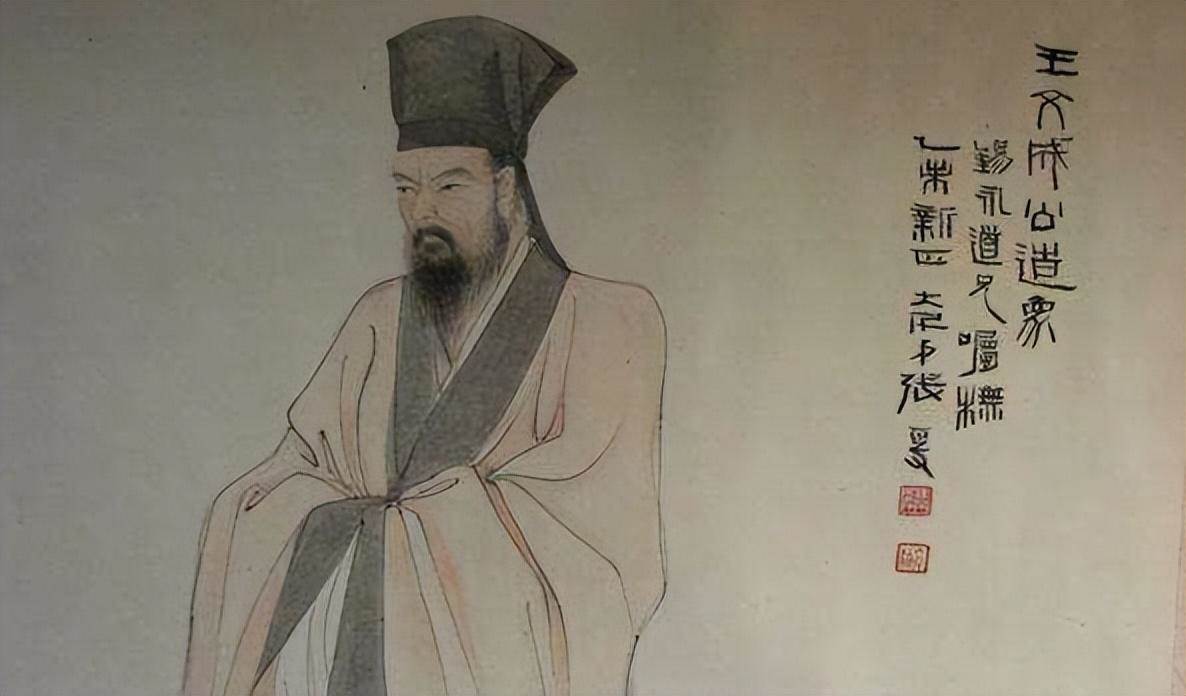 王文成公造象
錫永道兄囑橅
乙未新正 大千張爰